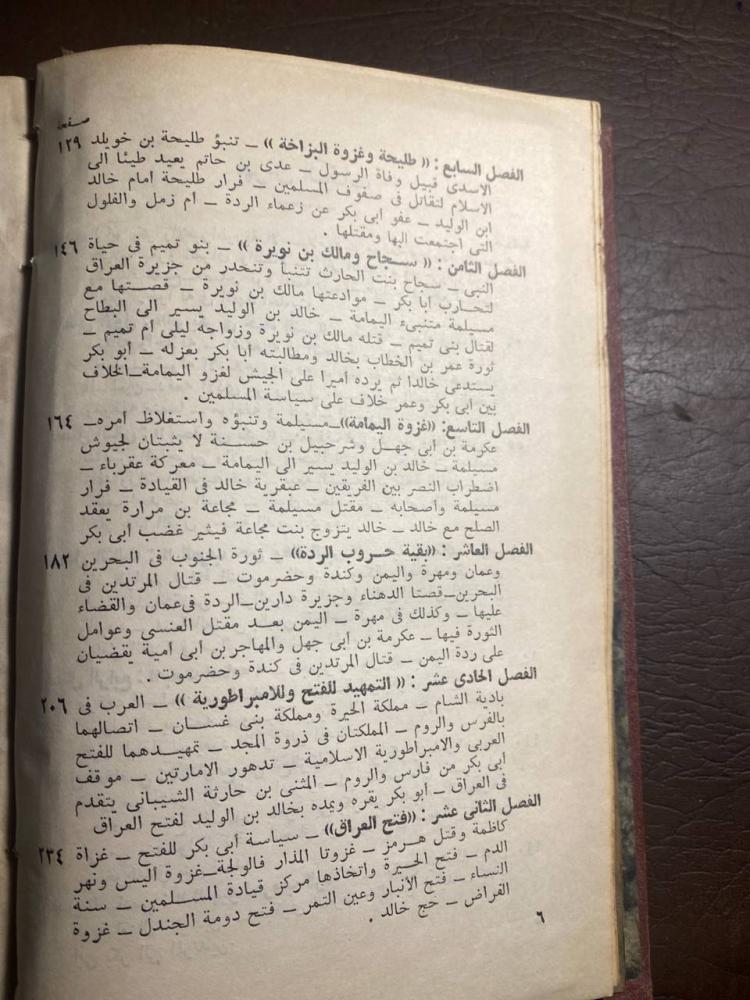 صفحة
الفصل السابع : « طليحة وغزوة البزاخة » ــ تنبؤ طليحة بن خويلد ١٢٩
الاسدى قبيل وفاة الرسول ــ عدى بن حاتم يعيد طيئا الى
الاسلام لتقاتل فى صفوف المسلمين ــ فرار طليحة امام خالد
ابن الوليد ــ عفو ابى بكر عن زعماء الردة ــ ام زمل والفلول
التى اجتمعت اليها ومقتلها .
الفصل الثامن : « سجاح ومالك بن نويرة » ــ بنو تميم فى حياة ١٤٦
النبى ــ سجاح بنت الحارث تتنبأ وتنحدر من جزيرة العراق
لتحارب ابا بكر ــ موادعتها مالك بن نويرة ــ قصتها مع
مسيلمة متنبىء اليمامة ــ خالد بن الوليد يسير الى البطاح
لقتال بنى تميم ــ قتله مالك بن نويرة وزواجه ليلى ام تميم ــ
ثورة عمر بن الخطاب بخالد ومطالبته ابا بكر بعزله ــ ابو بكر
يستدعى خالدا ثم يرده اميرا على الجيش لغزو اليمامة ــ الخلاف
بين ابى بكر وعمر خلاف على سياسة المسلمين .
الفصل التاسع : «غزوة اليمامة» ــ مسيلمة وتنبؤه واستغلاظ امره ــ ١٦٤
عكرمة بن ابى جهل وشرحبيل بن حسنة لا يثبتان لجيوش
مسيلمة ــ خالد بن الوليد يسير الى اليمامة ــ معركة عقرباء ــ
اضطراب النصر بين الفريقين ــ عبقرية خالد فى القيادة ــ فرار
مسيلمة واصحابه ــ مقتل مسيلمة ــ مجاعة بن مرارة يعقد
الصلح مع خالد ــ خالد يتزوج بنت مجاعة فيثير غضب ابى بكر
الفصل العاشر : «بقية حروب الردة» ــ ثورة الجنوب فى البحرين ١٨٢
وعمان ومهرة واليمن وكندة وحضرموت ــ قتال المرتدين فى
البحرين ــ قصتا الدهناء وجزيرة دارين ــ الردة فى عمان والقضاء
عليها ــ وكذلك فى مهرة ــ اليمن بعد مقتل العنسى وعوامل
الثورة فيها ــ عكرمة بن ابى جهل والمهاجر بن ابى امية يقضيان
على ردة اليمن ــ قتال المرتدين فى كندة وحضرموت .
الفصل الحادى عشر : « التمهيد للفتح وللامبراطورية » ــ العرب فى ٢٠٦
بادية الشام ــ مملكة الحيرة ومملكة بنى غسان ــ اتصالهما
بالفرس والروم ــ المملكتان فى ذروة المجد ــ تمهيدهما للفتح
العربى والامبراطورية الاسلامية ــ تدهور الامارتين ــ موقف
ابى بكر من فارس والروم ــ المثنى بن حارثة الشيبانى يتقدم
فى العراق ــ ابو بكر يقره ويمده بخالد بن الوليد لفتح العراق
الفصل الثانى عشر : «فتح العراق» ــ سياسة ابى بكر للفتح ــ غزاة ٢٣٤
كاظمة وقتل هرمز ــ غزوتا المذار فالولجة ــ غزوة اليس ونهر
الدم ــ فتح الحيرة واتخاذها مركز قيادة المسلمين ــ سنة
النساء ــ فتح الأنبار وعين التمر ــ فتح دومة الجندل ــ غزوة
الفراض ــ حج خالد .
٦